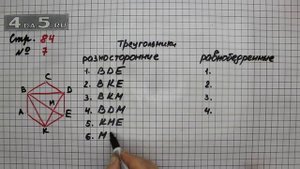 4DA5.RU
Стр. 84
№ 7
Треугольники
разносторонние
1. BDE
2. BKE
3. BKM
4. BDM
5. KME
6. M
равнобедренные
1.
2.
3.
4.
C
B D
M
A E
K